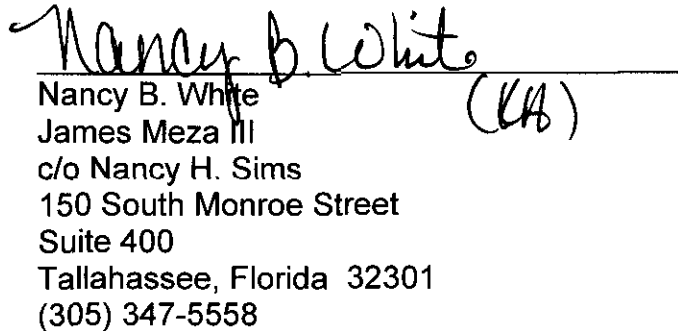 Nancy B. White
(KA)
Nancy B. White
James Meza III
c/o Nancy H. Sims
150 South Monroe Street
Suite 400
Tallahassee, Florida 32301
(305) 347-5558